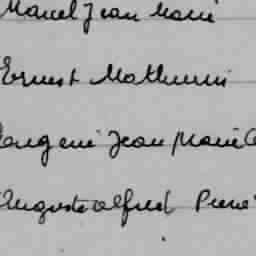 Marcel Jean Marie
Ernest Mathurin
Eugene Jean Marie
Auguste Alfred Pierre